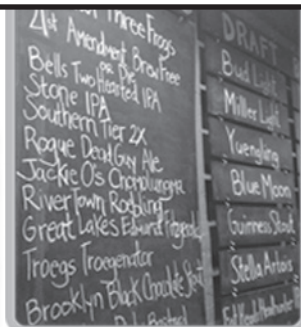 Three Frogs
21st Amendment Brew Free
or Die
Bells Two Hearted IPA
Stone IPA
Southern Tier 2X
Rogue Dead Guy Ale
Jackie O's Chomolungma
RiverTown Roebling
Great Lakes Edmund Fitzgerald
Troegs Troegenator
Brooklyn Black Chocolate Stout
Bastard
DRAFT
Bud Light
Miller Light
Yuengling
Blue Moon
Guinness Stout
Stella Artois